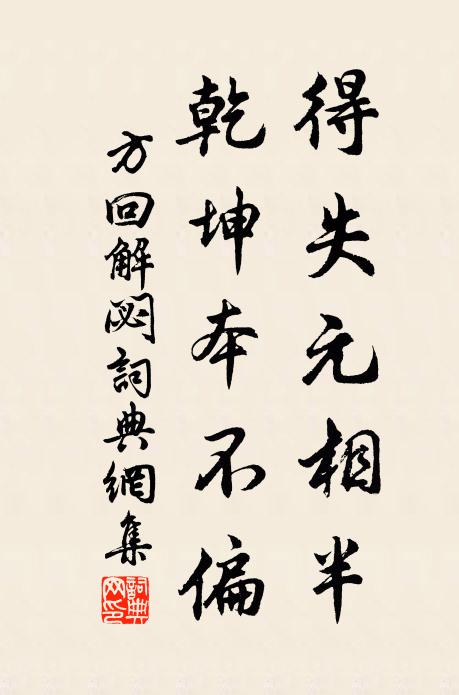 得失元相半
乾坤本不偏
方回解悶詞典網集
詞典网印